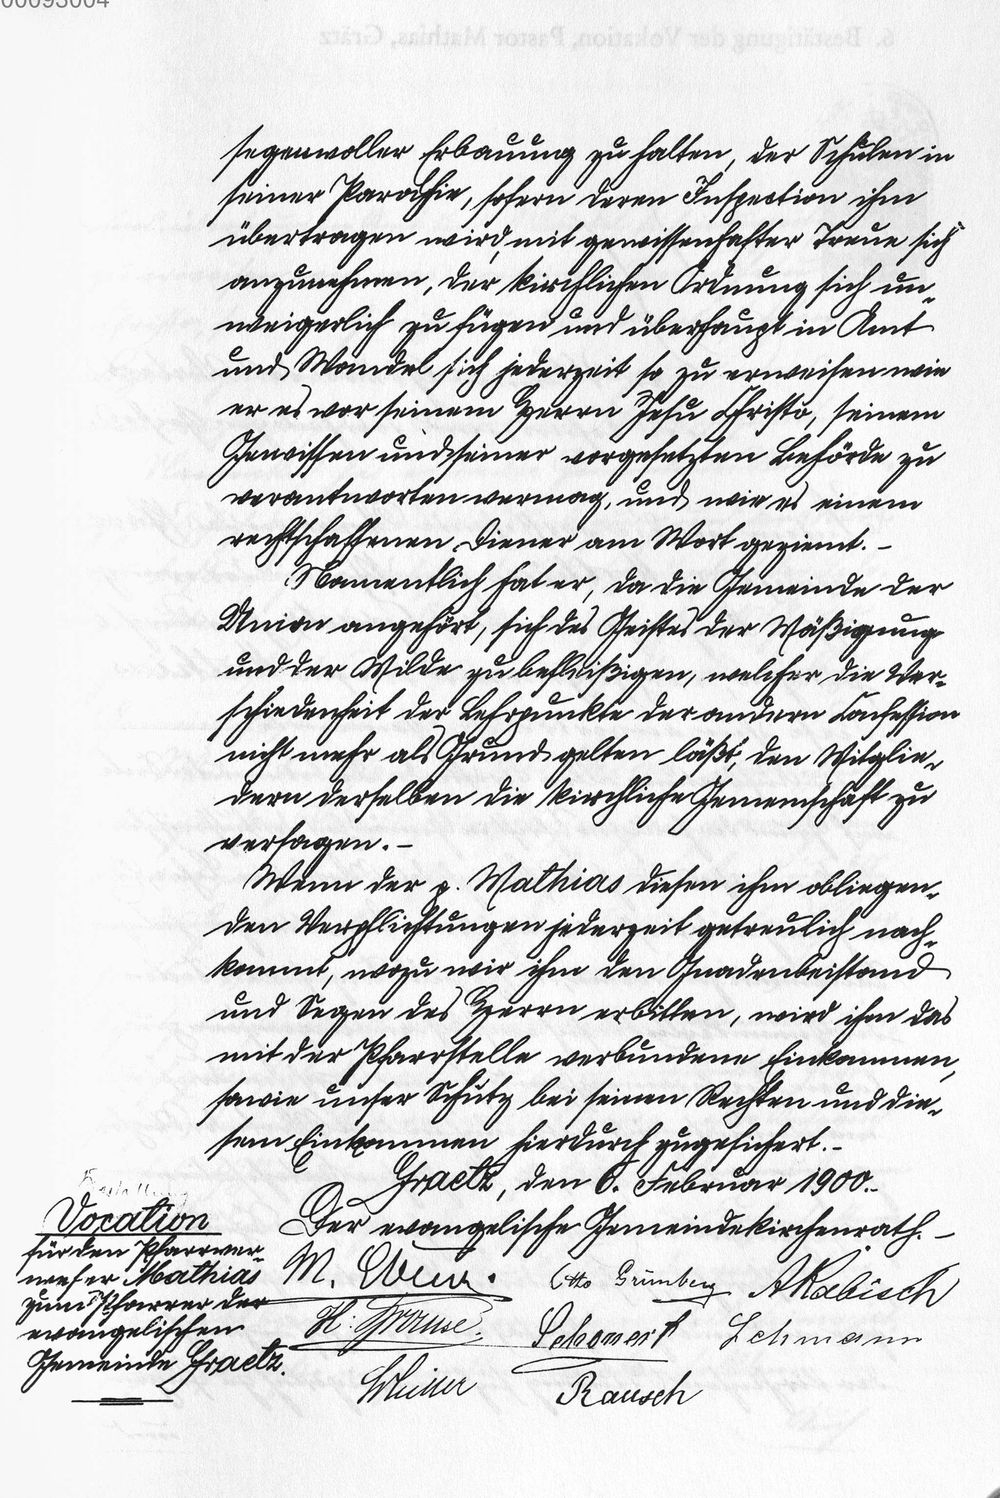 00093004
6. Bestätigung der Vokation, Pastor Mathias, Grätz
segenvoller Erbauung zu halten, der Schulen in
seiner Parochie, sofern deren Inspection ihm
übertragen wird, mit gewissenhafter Treue sich
anzunehmen, der kirchlichen Ordnung sich un-
weigerlich zu fügen und überhaupt in Amt
und Wandel sich jederzeit so zu erweisen wie
er es vor seinem Herrn Jesu Christo, seinem
Gewissen und seiner vorgesetzten Behörde zu
verantworten vermag, und wie es einem
rechtschaffenen Diener am Wort geziemt. -
Namentlich hat er, da die Gemeinde der
Union angehört, sich des Geistes der Mäßigung
und der Milde zu befleißigen, welcher die Ver-
schiedenheit der Lehrpunkte der andern Confession
nicht mehr als Grund gelten läßt, den Mitglie-
dern derselben die kirchliche Gemeinschaft zu
versagen. -
Wenn der p. Mathias diesen ihm obliegen-
den Verpflichtungen jederzeit getreulich nach-
kommt, wozu wir ihm den Gnadenbeistand
und Segen des Herrn erbitten, wird ihm das
mit der Pfarrstelle verbundene Einkommen,
sowie unser Schutz bei seinen Rechten und die-
sem Einkommen hierdurch zugesichert. -
Graetz, den 6. Februar 1900. -
Der evangelische Gemeindekirchenrath. -
Vocation
für den Pfarrver-
weser Mathias
zum Pfarrer der
evangelischen
Gemeinde Graetz.
M.
Otto Grünberg
A Rabisch
H.
Schonert
Lehmann
Rausch